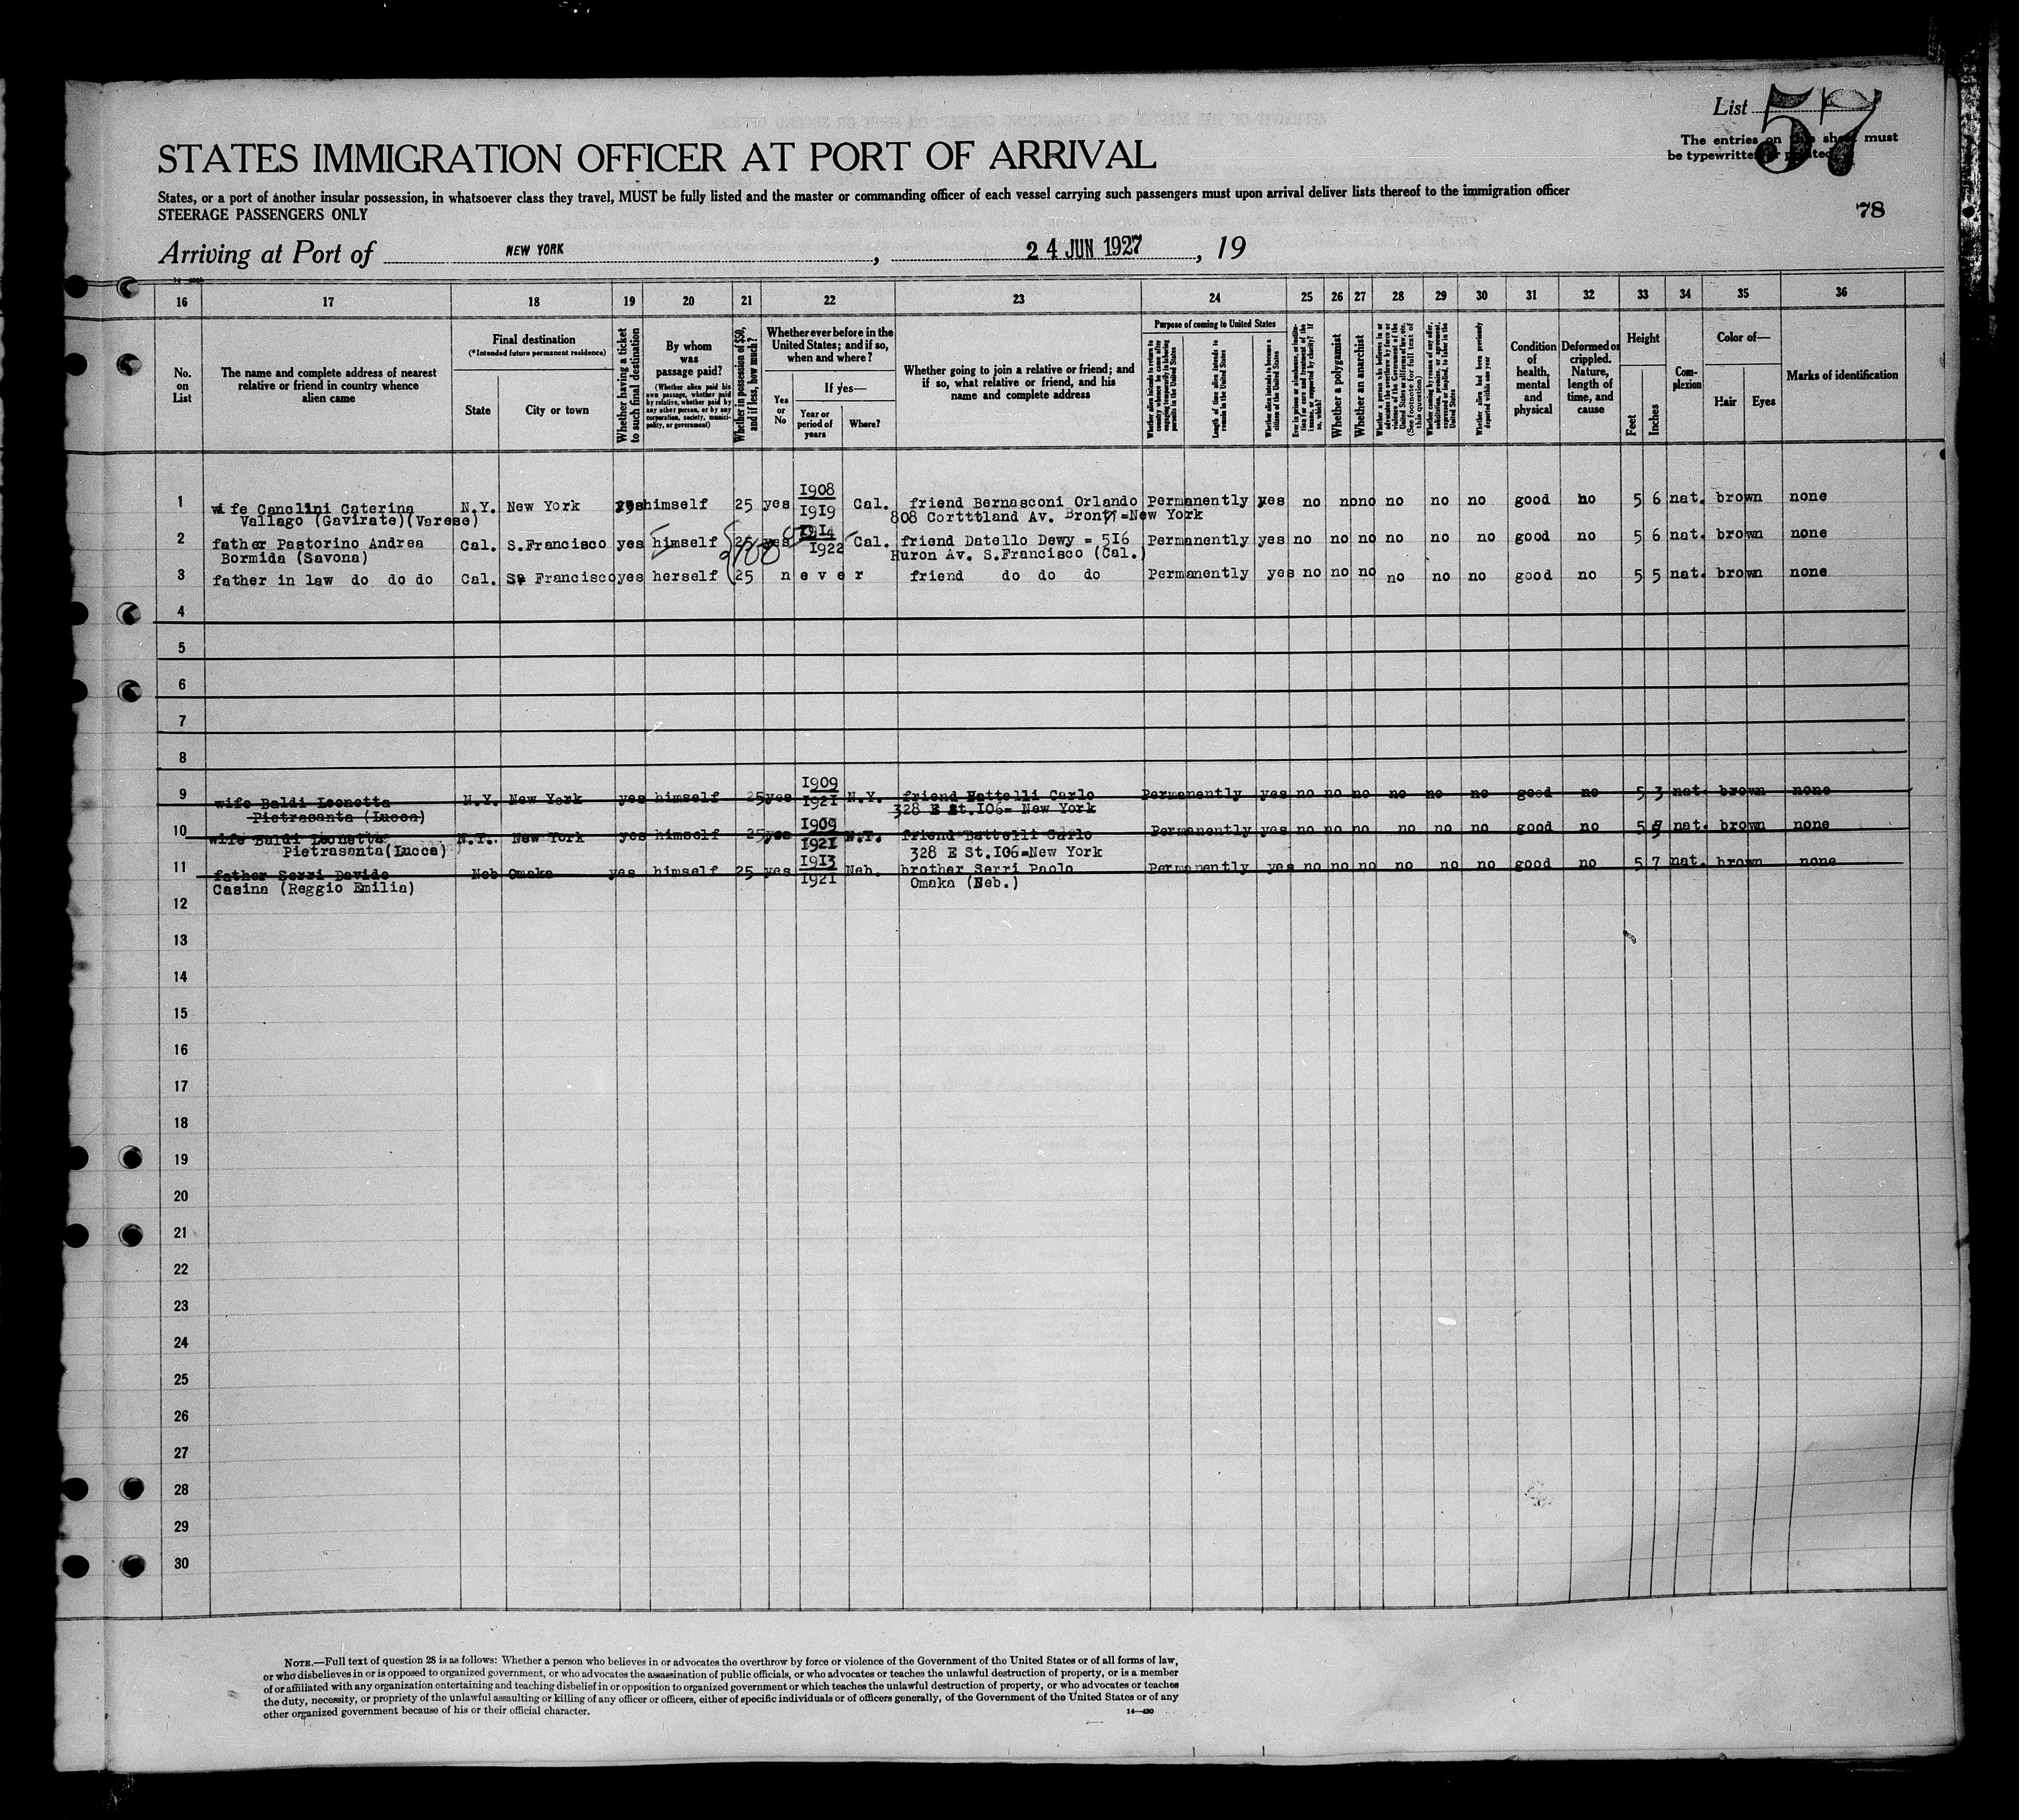 List 57
The entries on this sheet must
be typewritten or printed
STATES IMMIGRATION OFFICER AT PORT OF ARRIVAL
States, or a port of another insular possession, in whatsoever class they travel, MUST be fully listed and the master or commanding officer of each vessel carrying such passengers must upon arrival deliver lists thereof to the immigration officer
STEERAGE PASSENGERS ONLY
78
Arriving at Port of NEW YORK, 24 JUN 1927, 19
16 17 18 19 20 21 22 23 24 25 26 27 28 29 30 31 32 33 34 35 36
No. on List
The name and complete address of nearest relative or friend in country whence alien came
Final destination
(*Intended future permanent residence)
State
City or town
Whether having a ticket to such final destination
By whom was passage paid?
(Whether alien paid his own passage, whether paid by relative, whether paid by any other person, or by any corporation, society, municipality, or government)
Whether in possession of $50, and if less, how much?
Whether ever before in the United States; and if so, when and where?
Yes or No
If yes—
Year or period of years
Where?
Whether going to join a relative or friend; and if so, what relative or friend, and his name and complete address
Purpose of coming to United States
Whether alien intends to return to country whence he came after engaging temporarily in laboring pursuits in the United States
Length of time alien intends to remain in the United States
Whether alien intends to become a citizen of the United States
Ever in prison or almshouse, or institution for care and treatment of the insane, or supported by charity? If so, which?
Whether a polygamist
Whether an anarchist
Whether a person who believes in or advocates the overthrow by force or violence of the Government of the United States or all forms of law, etc. (See footnote for full text of this question)
Whether coming by reason of any offer, solicitation, promise, or agreement, expressed or implied, to labor in the United States
Whether alien had been previously deported within one year
Condition of health, mental and physical
Deformed or crippled. Nature, length of time, and cause
Height
Feet
Inches
Complexion
Color of—
Hair
Eyes
Marks of identification
1 wife Canclini Caterina N.Y. New York yes himself 25 yes 1908 1919 Cal. friend Bernasconi Orlando Permanently yes no no no no no no good no 5 6 nat. brown none
Vallago (Gavirate)(Varese) 808 Cortttland Av. =New York
2 father Pastorino Andrea Cal. S.Francisco yes himself 25 100 yes 1914 1922 Cal. friend Datello Dewy = 516 Permanently yes no no no no no no good no 5 6 nat. brown none
Bormida (Savona) Huron Av. S.Francisco (Cal.)
3 father in law do do do Cal. Francisco yes herself 25 never friend do do do Permanently yes no no no no no no good no 5 5 nat. brown none
4
5
6
7
8
9 wife Baldi Leonetta N.Y. New York yes himself 25 yes 1909 1921 N.Y. friend Carlo Permanently yes no no no no no no good no 5 3 nat. brown none
Pietrasanta (Lucca) 328 E St.I06= New York
10 wife Baldi Leonetta N.Y. New York yes himself 25 yes 1909 1921 N.Y. friend Battelli Carlo Permanently yes no no no no no no good no 5 nat. brown none
Pietrasanta(Lucca) 328 E St.I06=New York
11 father Serri Davide Neb Omaka yes himself 25 yes 1913 1921 Neb. brother Serri Paolo Permanently yes no no no no no no good no 5 7 nat. brown none
Casina (Reggio Emilia) Omaka (Neb.)
12
13
14
15
16
17
18
19
20
21
22
23
24
25
26
27
28
29
30
NOTE.—Full text of question 28 is as follows: Whether a person who believes in or advocates the overthrow by force or violence of the Government of the United States or of all forms of law,
or who disbelieves in or is opposed to organized government, or who advocates the assassination of public officials, or who advocates or teaches the unlawful destruction of property, or is a member
of or affiliated with any organization entertaining and teaching disbelief in or opposition to organized government or which teaches the unlawful destruction of property, or who advocates or teaches
the duty, necessity, or propriety of the unlawful assaulting or killing of any officer or officers, either of specific individuals or of officers generally, of the Government of the United States or of any
other organized government because of his or their official character.
14—430